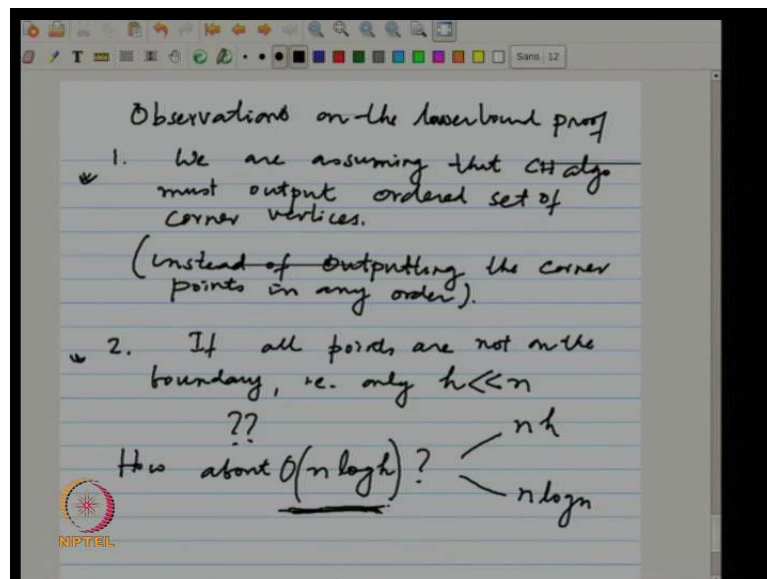 Sans 12
Observations on the lowerbound proof
1. We are assuming that CH algo
must output ordered set of
corner vertices.
(instead of outputting the corner
points in any order).
2. If all points are not on the
boundary, i.e. only h<<n
??
nh
How about O(n logh) ?
n logn
NPTEL